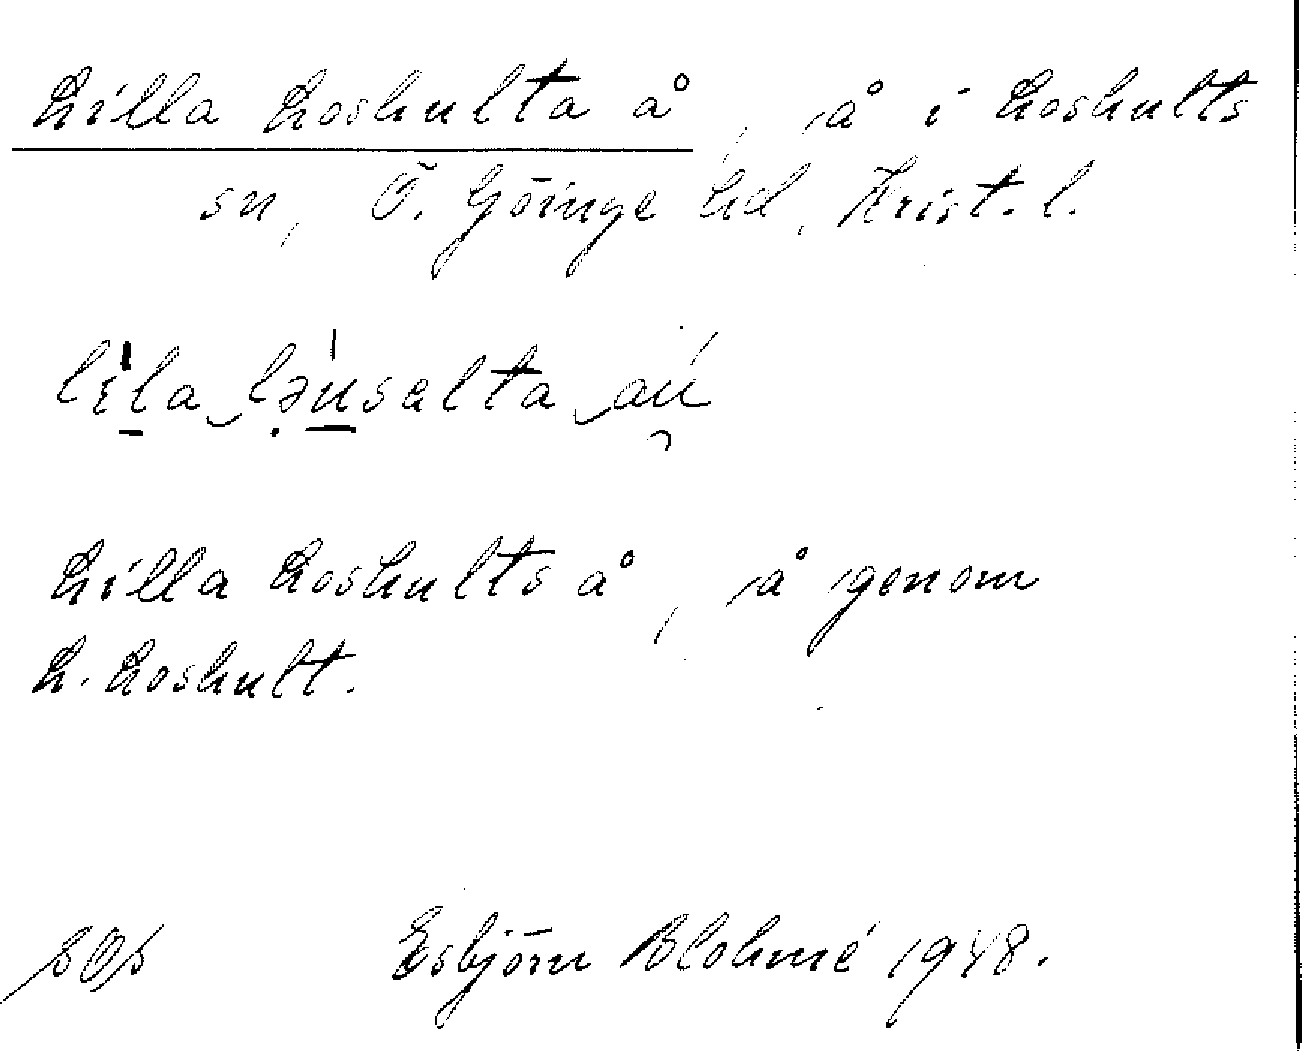 Lilla Loshulta å, å i Loshults
sn, Ö. Göinge hd, Krist. l.
Lilla Loshults å, å genom
L. Loshult.
Esbjörn Blohmé 1948.